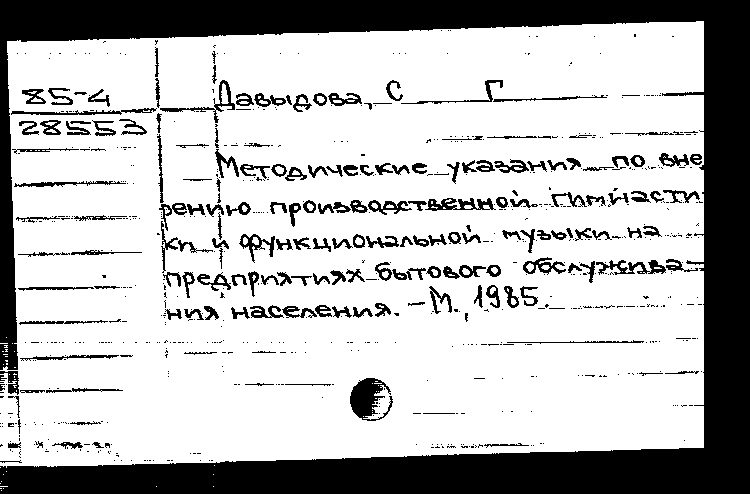 85-4
28553
Давыдова, С Г
Методические указания по внед
рению производственной гимнасти
ки и функциональной музыки на
предприятиях бытового обслужива-
ния населения. – М., 1985.